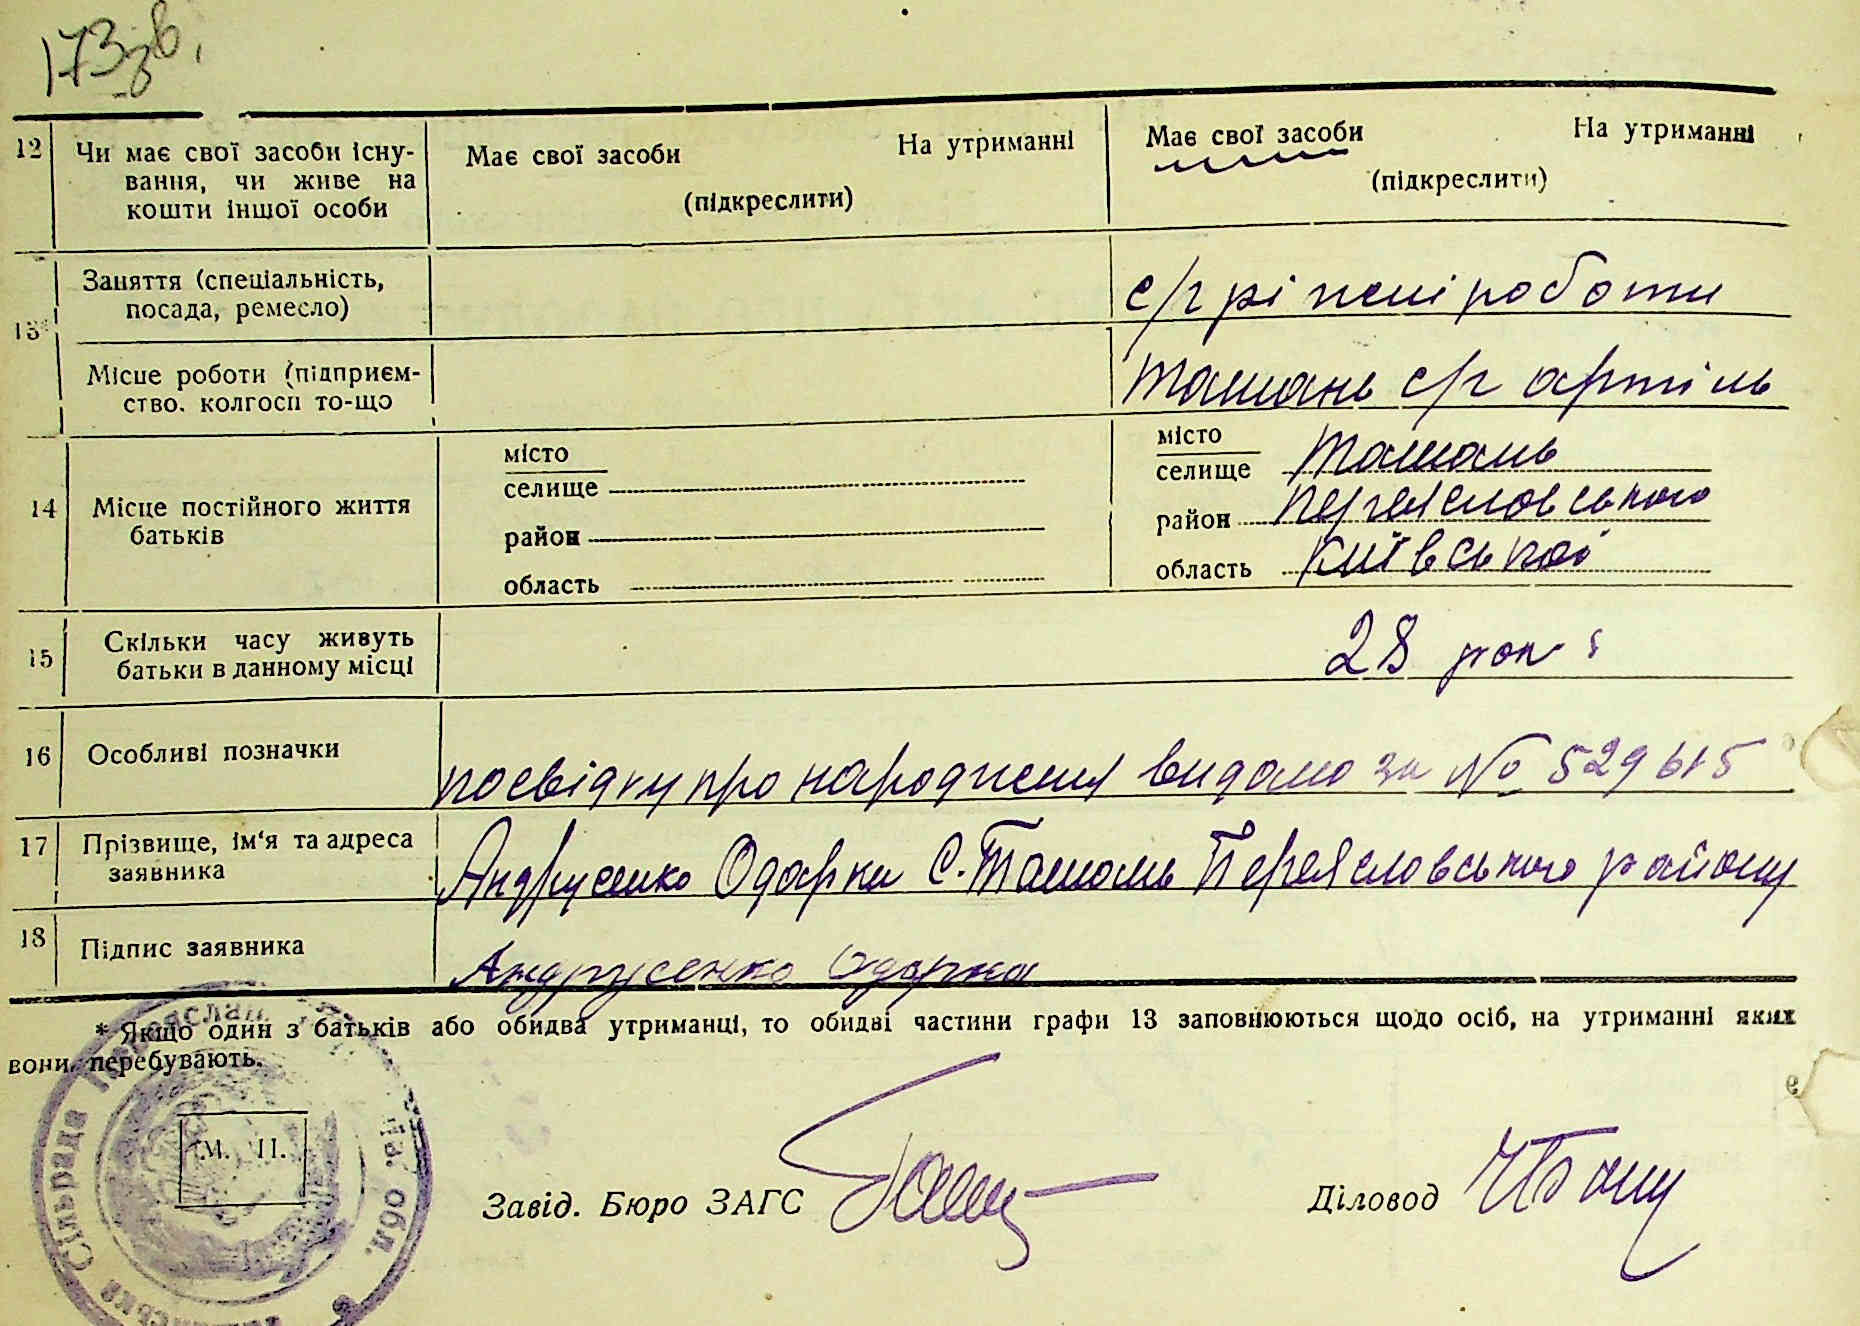 173зв.
12 Чи має свої засоби існу- Має свої засоби На утриманні Має свої засоби На утриманні
вання, чи живе на (підкреслити) (підкреслити)
кошти іншої особи
13* Заняття (спеціальність,
посада, ремесло) с/г ріжні роботи
Місце роботи (підприєм-
ство, колгосп то-що Ташань с/г артіль
14 Місце постійного життя
батьків
місто
селище
район
область
місто
селище Ташань
район Переяславського
область Київської
15 Скільки часу живуть
батьки в данному місці 28 рок
16 Особливі позначки посвідку про народження видано за № 529615
17 Прізвище, ім'я та адреса
заявника Андрусенко Одарки С. Ташань Переяславського району
18 Підпис заявника Андрусенко Одарка
* Якщо один з батьків або обидва утриманці, то обидві частини графи 13 заповнюються щодо осіб, на утриманні яких
вони перебувають.
Сільрада обл.
М. П.
Завід. Бюро ЗАГС Діловод